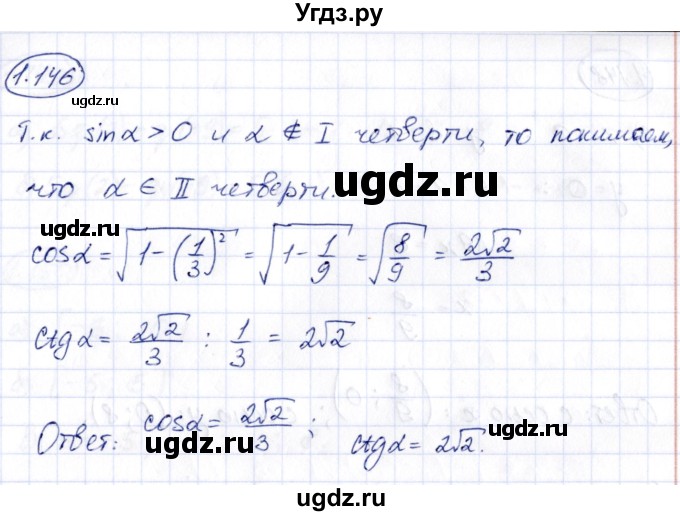 Угдз.ру
1.146
ugdz.ru
ugdz.ru
ugdz.ru
Т.к. sinα > 0 и α ∉ I четверти, то понимаем,
что α ∈ II четверти.
ugdz.ru
cosα = √(1 - (1/3)²) = √(1 - 1/9) = √(8/9) = 2√2/3
ctgα = 2√2/3 : 1/3 = 2√2
Ответ: cosα = 2√2/3; ctgα = 2√2.
ugdz.ru
ugdz.ru
ugdz.ru